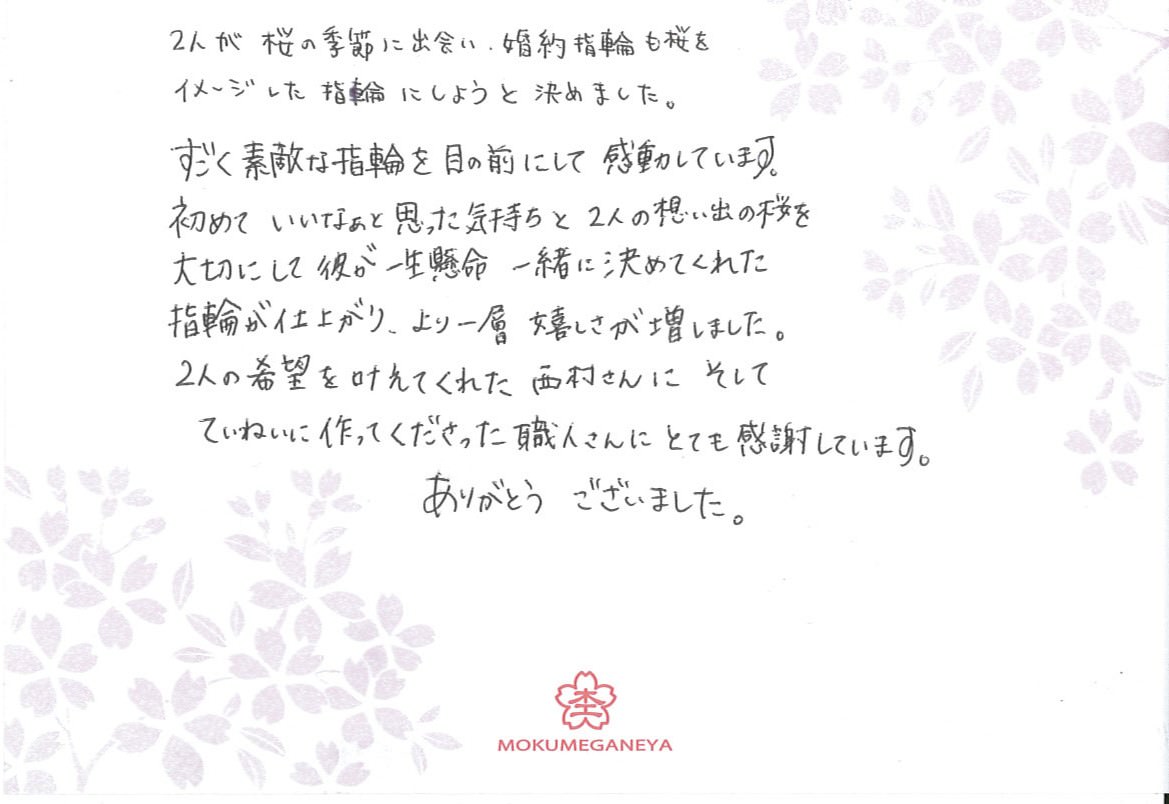 2人が 桜の季節に出会い、婚約指輪も桜を
イメージした 指輪 にしようと 決めました。
すごく素敵な指輪を目の前にして 感動しています。
初めて いいなぁと思った気持ちと 2人の想い出の桜を
大切にして 彼が 一生懸命 一緒に決めてくれた
指輪が仕上がり、より一層 嬉しさが増しました。
2人の希望を叶えてくれた 西村さんに そして
ていねいに作ってくださった職人さんに とても感謝しています。
ありがとう ございました。
MOKUMEGANEYA